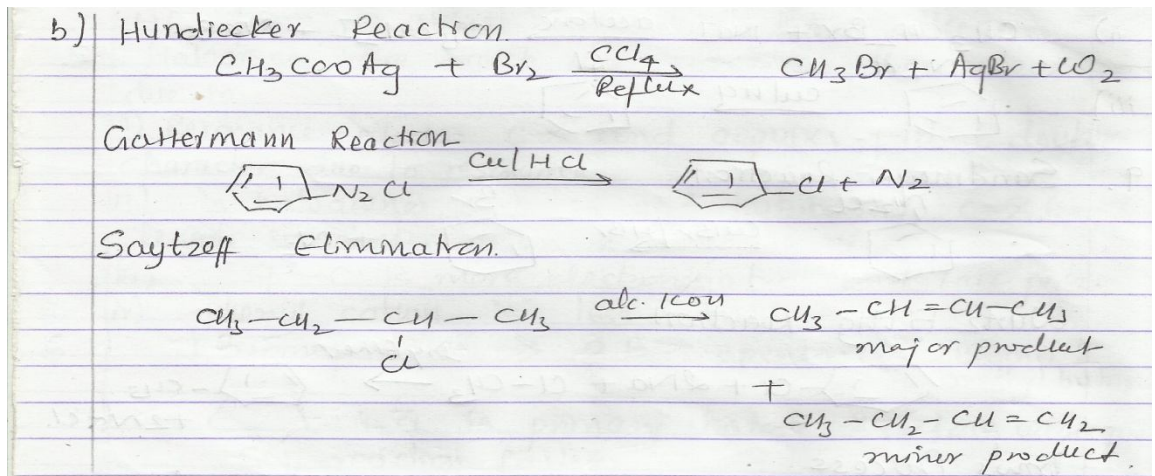 b) Hundiecker Reaction.
CH3COOAg + Br2 CCl4 Reflux → CH3Br + AgBr + CO2
Gattermann Reaction
N2Cl Cu/HCl → Cl + N2
Saytzeff Elimination.
CH3-CH2-CH-CH3 alc. KOH → CH3-CH=CH-CH3
Cl major product
+
CH3-CH2-CH=CH2
miner product